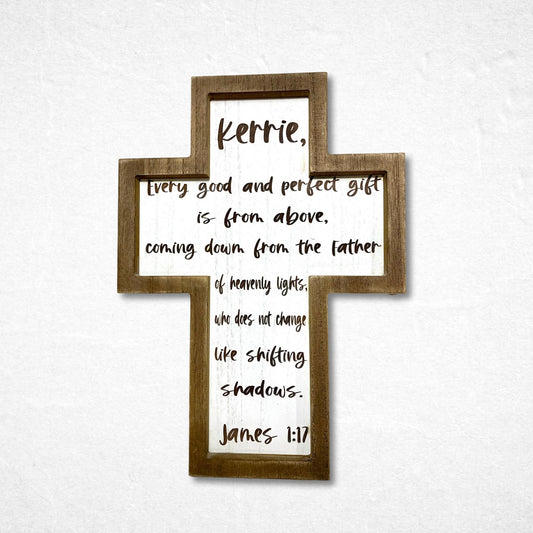 Kerrie,
Every good and perfect gift
is from above,
coming down from the Father
of heavenly lights,
who does not change
like shifting
shadows.
James 1:17